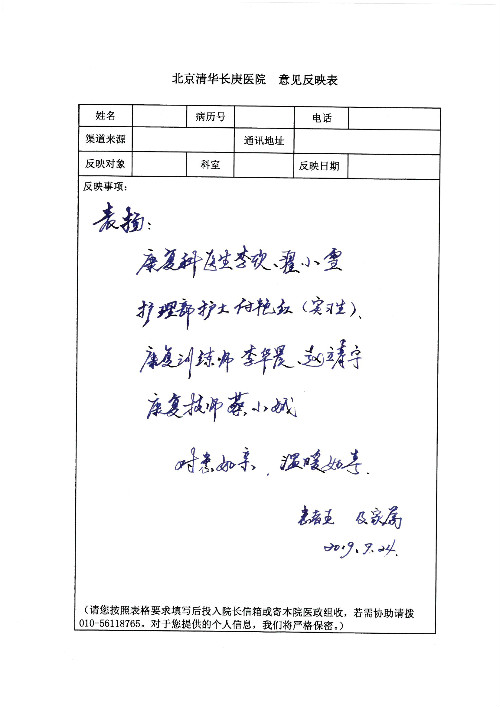 北京清华长庚医院 意见反映表
姓名 病历号 电话
渠道来源 通讯地址
反映对象 科室 反映日期
反映事项：
表扬：
康复科医生李欣、瞿小雪
护理部护士付艳红（实习生）、
康复训练师 李华晨、赵靖宇
康复技师 蔡小娥
对患如亲，温暖如春.
患者 及家属
2019.9.24.
（请您按照表格要求填写后投入院长信箱或寄本院医政组收，若需协助请拨
010-56118765，对于您提供的个人信息，我们将严格保密。）